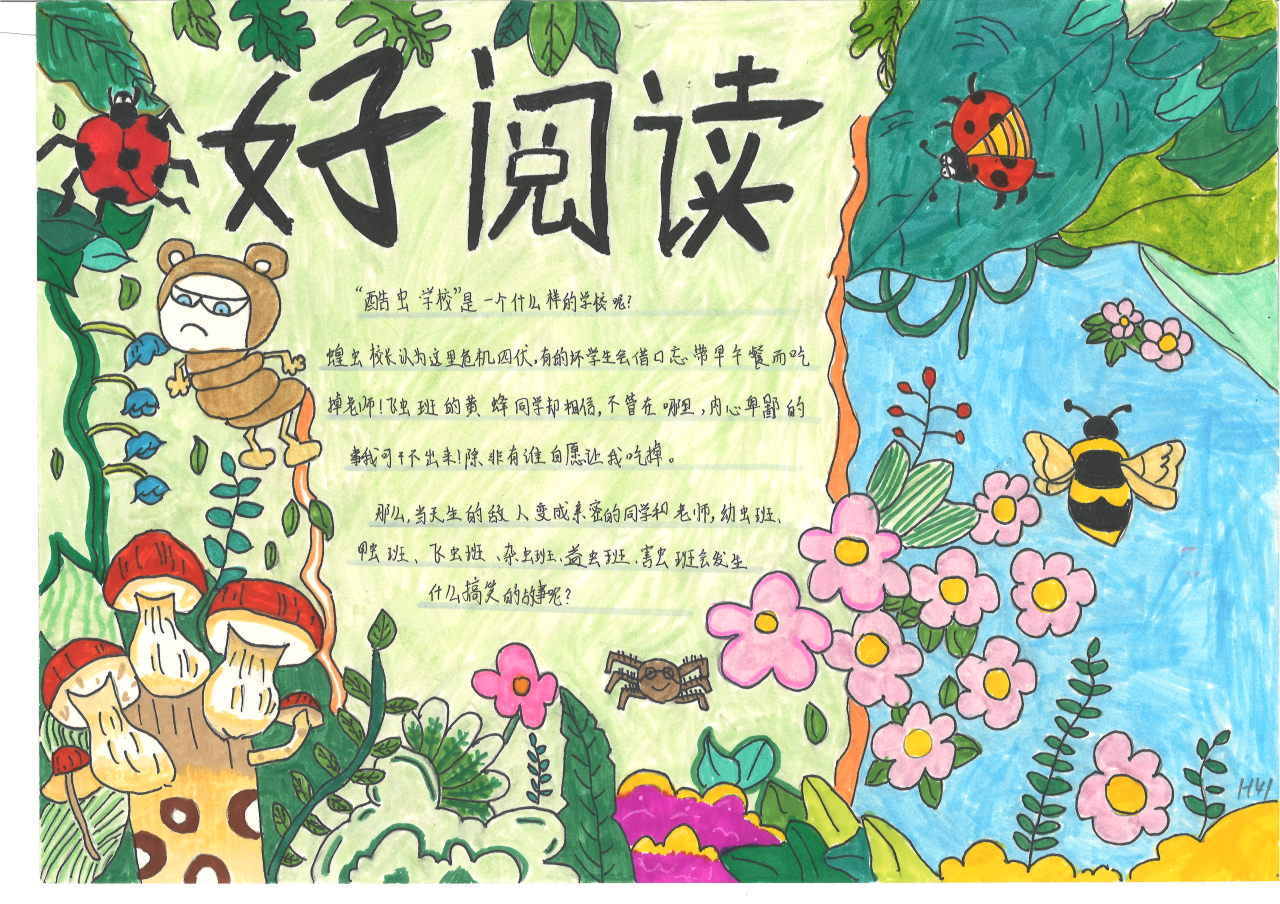 好阅读
“酷虫学校”是一个什么样的学校呢?
蝗虫校长认为这里危机四伏,有的坏学生会借口忘带早午餐而吃
掉老师!飞虫班的黄蜂同学却相信,不管在哪里,内心卑鄙的
事我可干不出来!除非有谁自愿让我吃掉。
那么,当天生的敌人变成亲密的同学和老师,幼虫班、
甲虫班、飞虫班、杂虫班、益虫班、害虫班会发生
什么搞笑的故事呢?